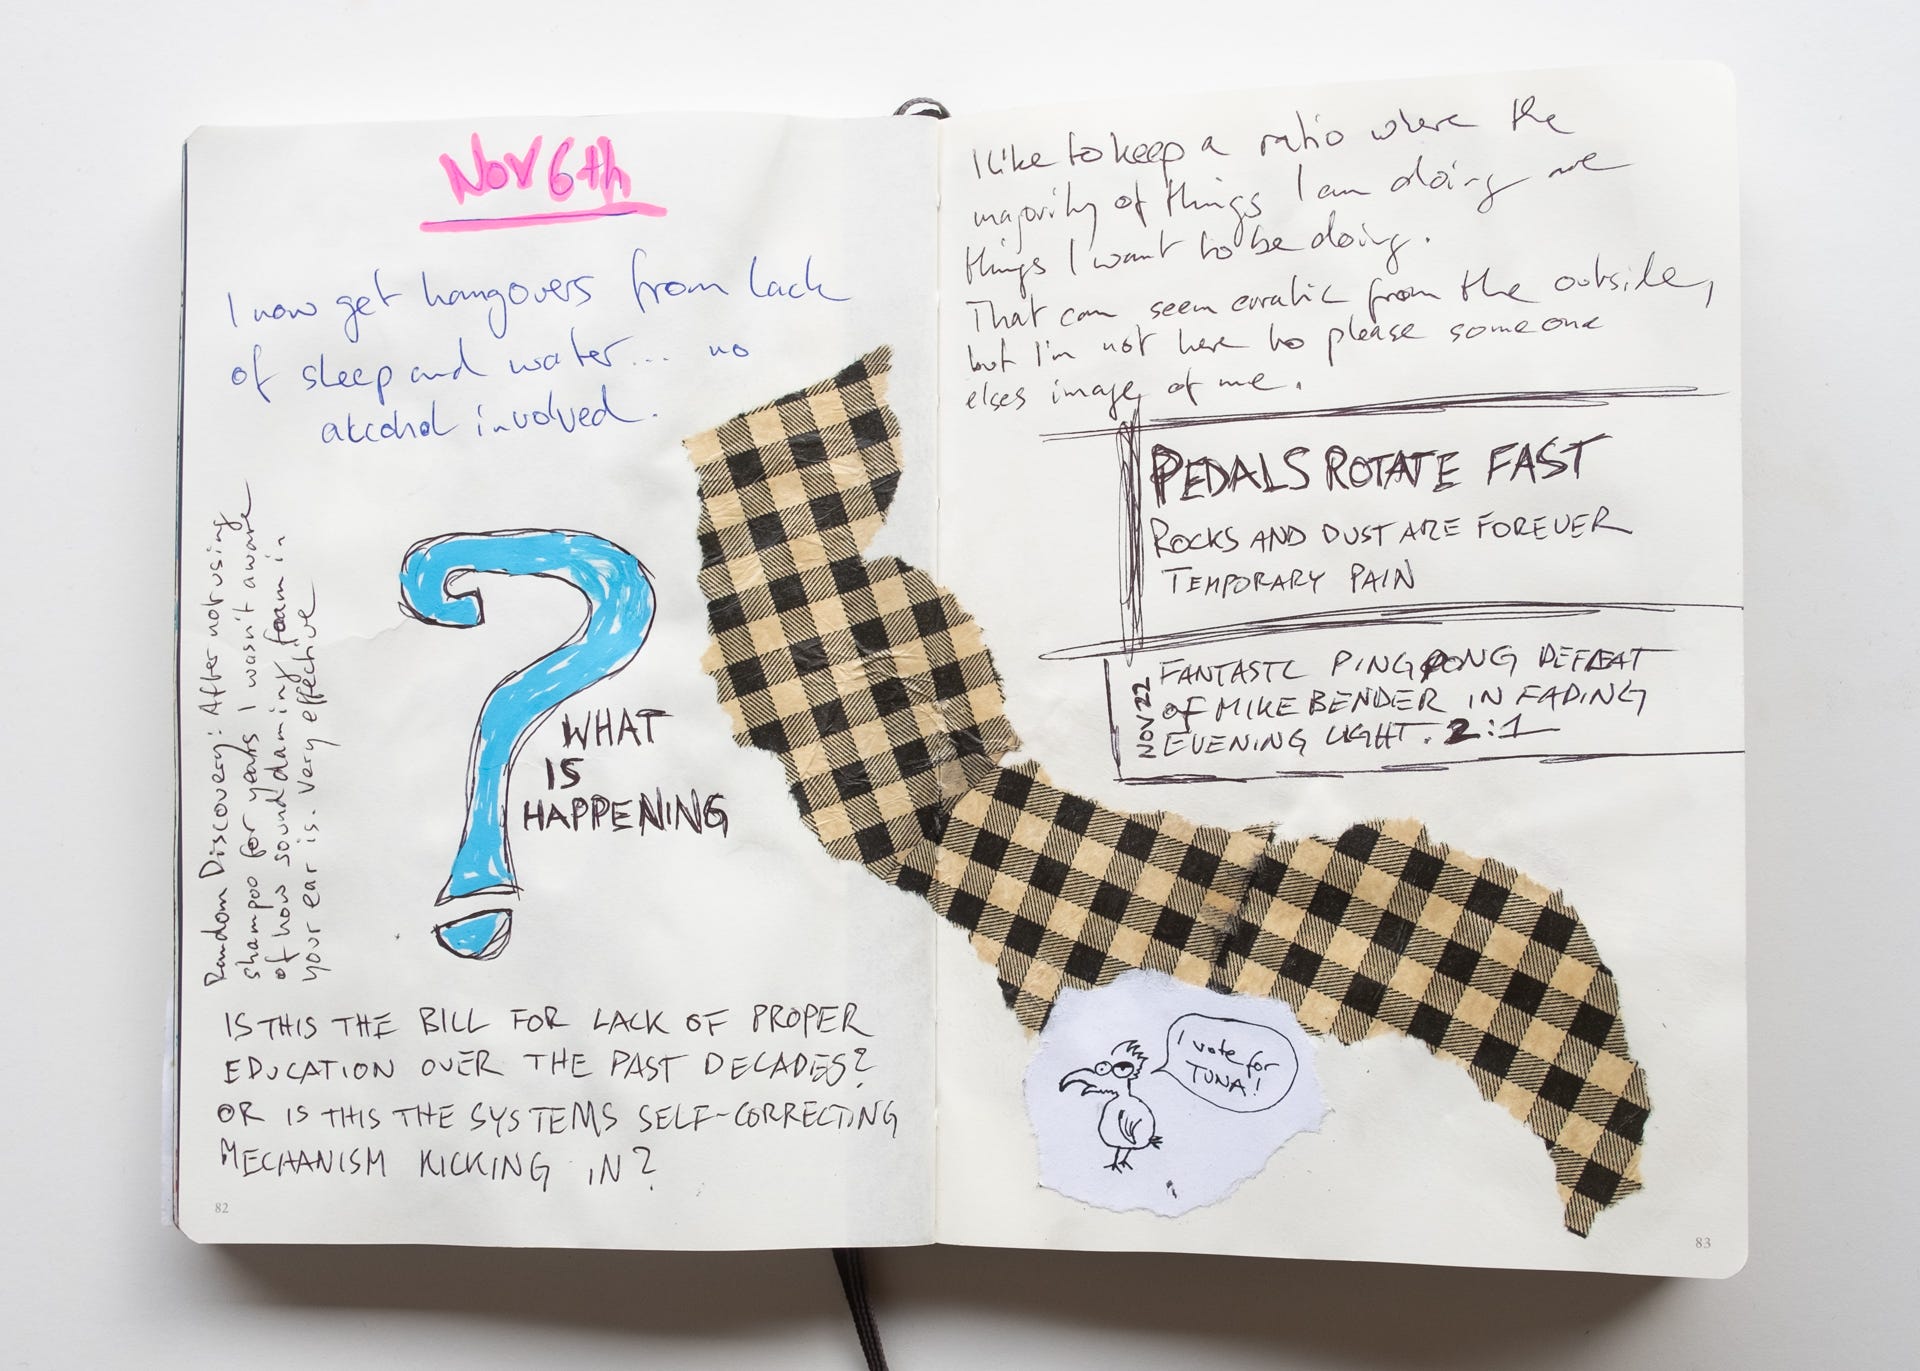 Nov 6th
I now get hangovers from lack
of sleep and water... no
alcohol involved.
Random Discovery: After not using
shampoo for years I wasn't aware
of how sound damining foam in
your ear is. Very effective
WHAT
IS
HAPPENING
IS THIS THE BILL FOR LACK OF PROPER
EDUCATION OVER THE PAST DECADES?
OR IS THIS THE SYSTEMS SELF-CORRECTING
MECHANISM KICKING IN?
82
I like to keep a ratio where the
majority of things I am doing are
things I want to be doing.
That can seem erratic from the outside,
but I'm not here to please someone
elses image of me.
PEDALS ROTATE FAST
ROCKS AND DUST ARE FOREVER
TEMPORARY PAIN
NOV 22
FANTASTC PING PONG DEFEAT
OF MIKE BENDER IN FADING
EVENING LIGHT. 2:1
I vote for
TUNA!
83